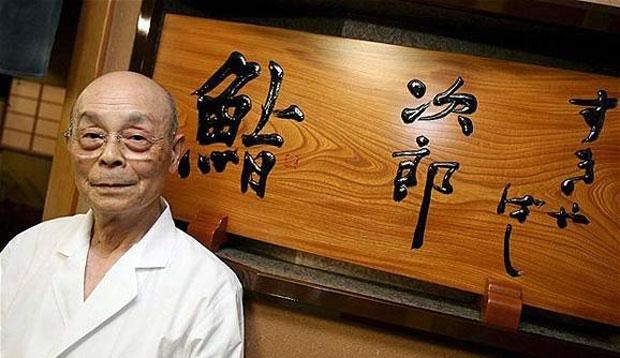 鮨
次郎
すきやばし